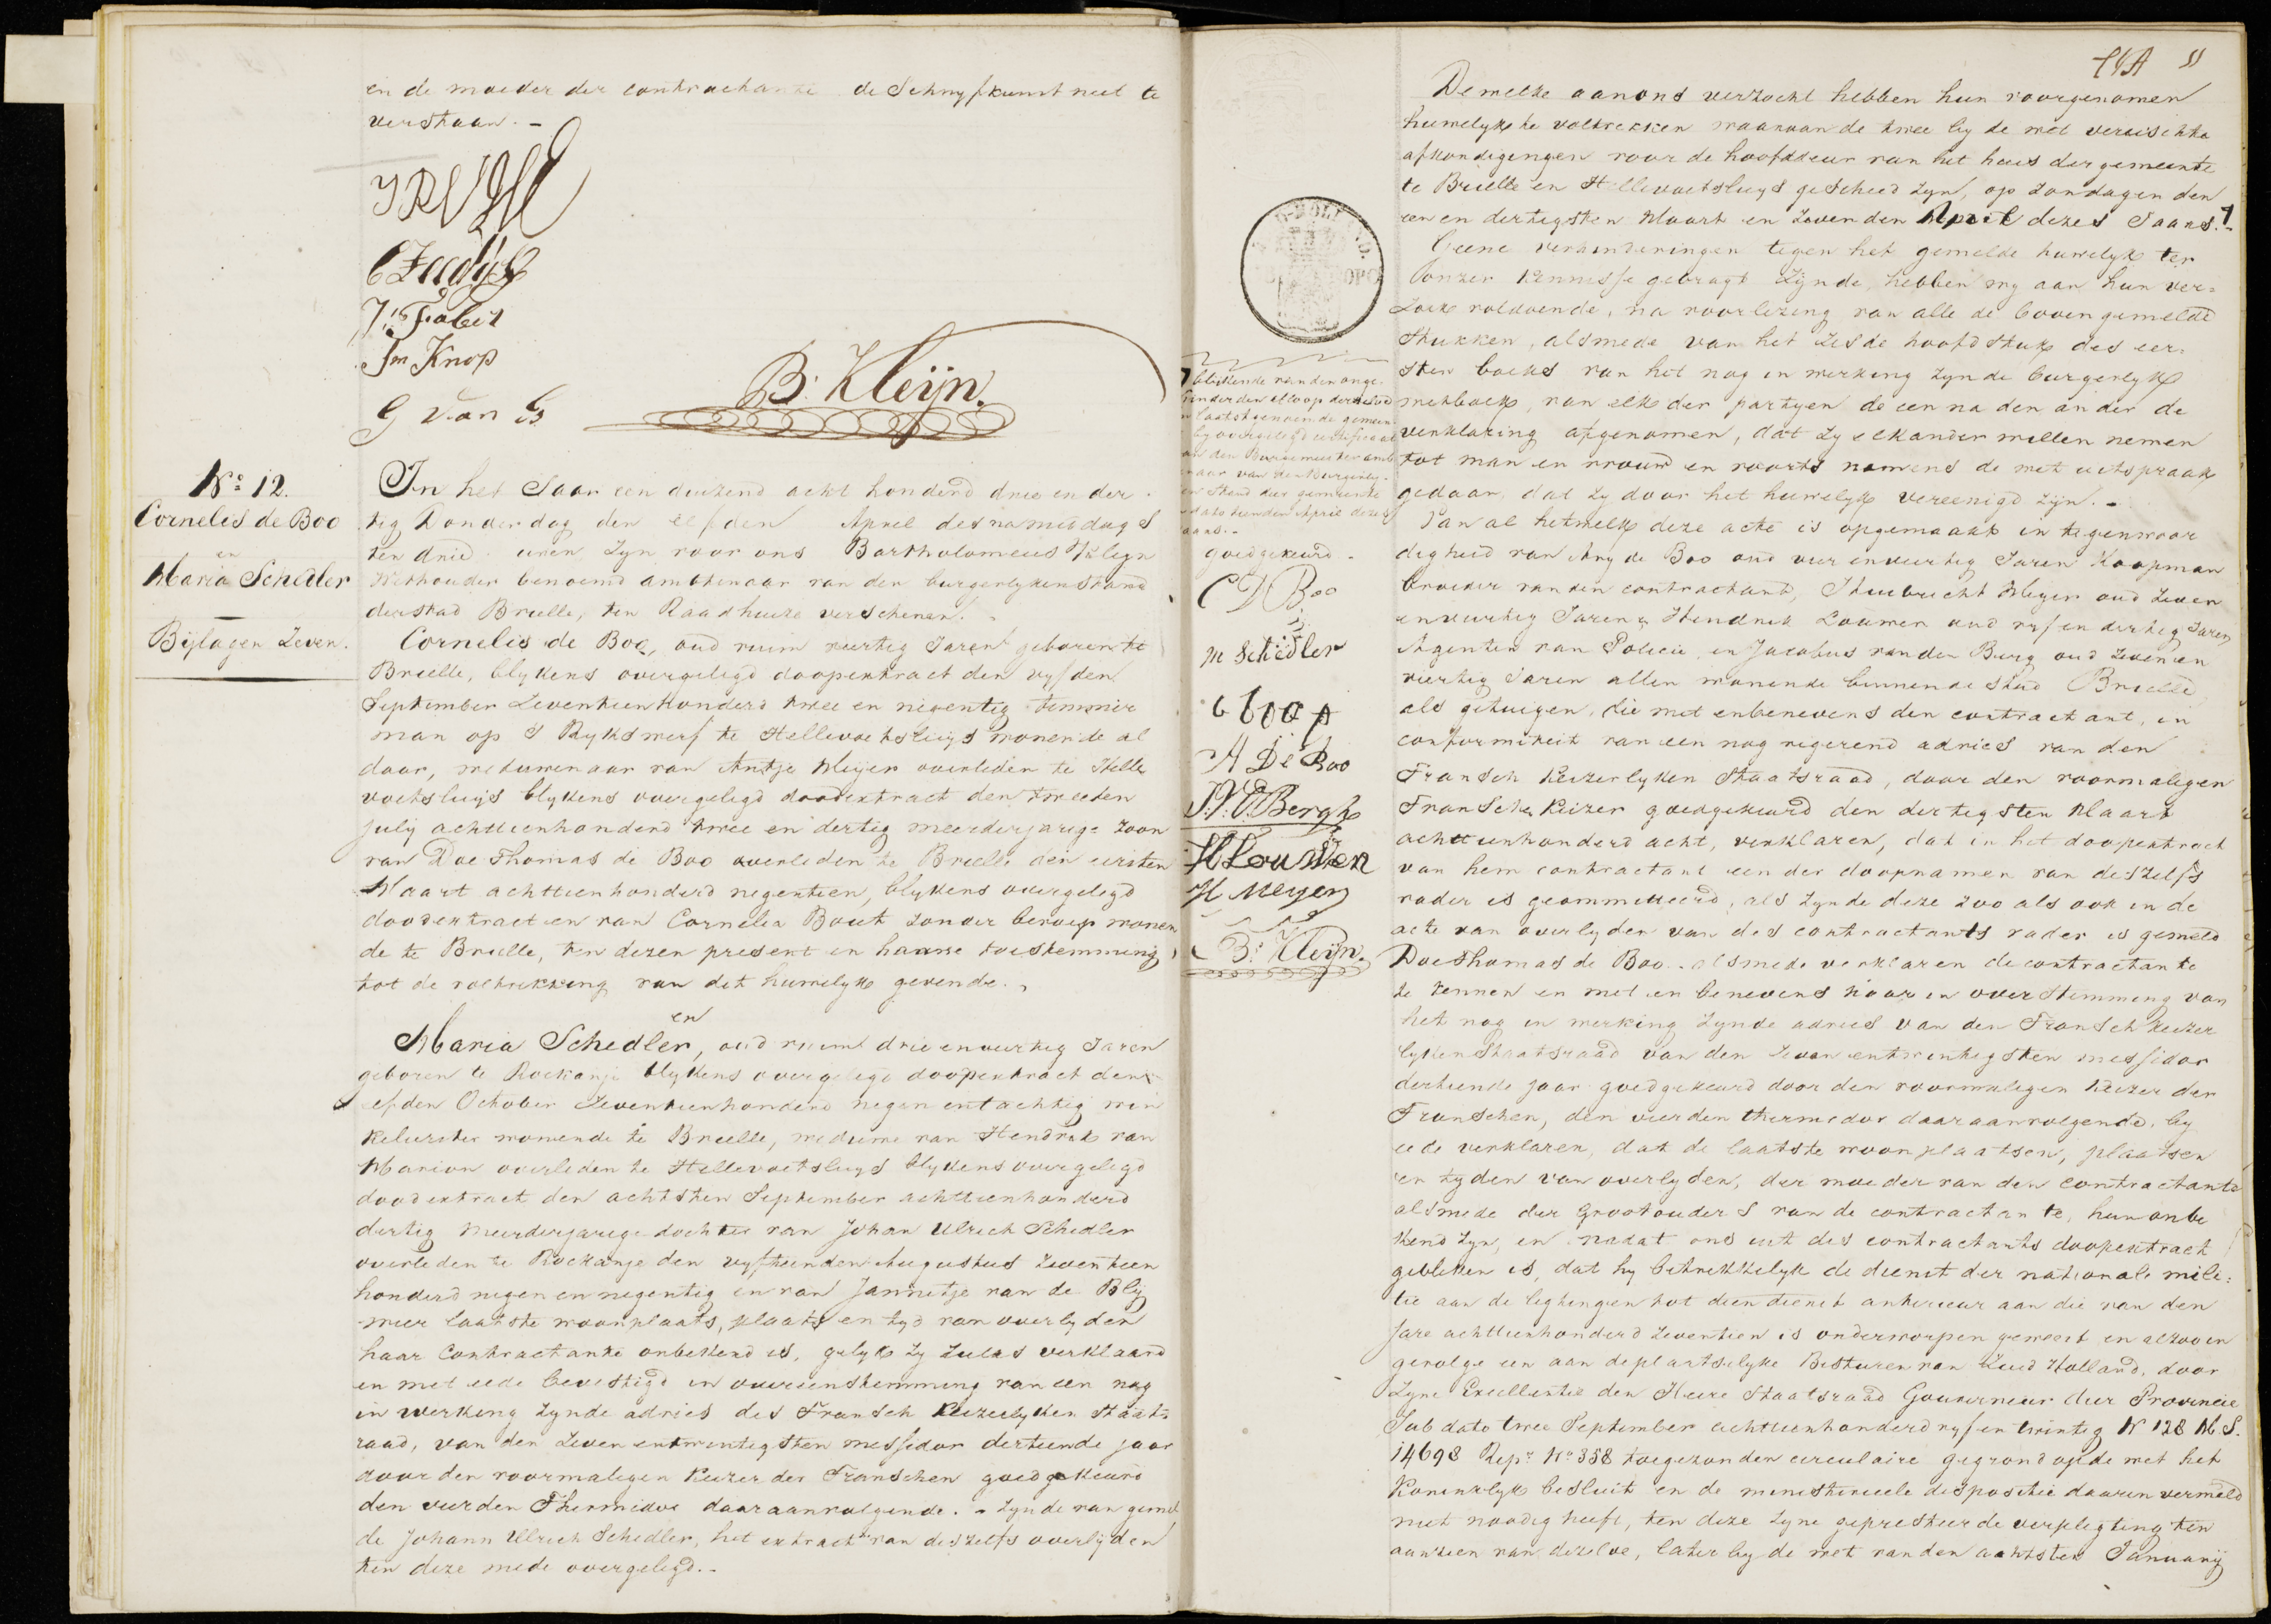 en de moeder der contractante de Schryfkunst niet te
verstaan. -
C Zuidijk
Jn Knop
G van Es
B: Kleijn.
No: 12.
Cornelis de Boo
en
Maria Schedler
Bijlagen Zeven.
In het Jaar een duizend acht honderd drie en der-
tig Donderdag den elfden April des namiddags
ten drie uren, Zyn voor ons Bartholomeus Kleyn
Wethouder benoemd ambtenaar van den burgerlyken stand
der stad Brielle, ten Raadhuize verschenen.
Cornelis de Boo, oud ruim veertig Jaren geboren te
Brielle, blykens overgelegd doopextract den vyfden
September Zeventienhonderd twee en negentig timmer
man op s Ryks werf te Hellevoetsluys wonende al
daar, weduwenaar van Antje Meijer overleden te Helle
voetsluijs blykens overgelegd doodextract den tweeden
July achttienhonderd twee en dertig meerderjarige Zoon
van Doe Thomas de Boo overleden te Brielle den eersten
Maart achttienhonderd negentien, blykens overgelegd
doodextract en van Cornelia Bout zonder beroep wonen
de te Brielle, ten dezen present en haare toestemming
tot de voltrekking van dit huwelyk gevende.
en
Maria Schedler, oud ruim drie en veertig Jaren
geboren te Rockanje blykens overgelegd doopextract den
elfden October Zeventienhonderd negen en tachtig win
kelierster wonende te Brielle, weduwe van Hendrik van
Marion overleden te Hellevoetsluys blykens overgelegd
doodextract den achtsten September achttienhonderd
dertig meerderjarige dochter van Johan Ulrich Schedler
overleden te Rockange den vyftienden Augustus Zeventien
honderd negen en negentig en van Jannetje van der Blij
wier laatste woonplaats, plaats en tyd van overlyden
haar Contractante onbekend is, gelyk Zy Zulks verklaard
en met eede bevestigd in overeenstemming van een nog
in werking Zynde advies des Fransch Keizerlyken Staats
raad, van den Zeven entwintigsten messidor dertiende jaar
door den voormaligen Keizer der Franschen goedgekeurd
den vierden Thermidor daaraanvolgende. - Zynde van gemel
de Johann Ulrich Schedler, het extract van deszelfs overlyden
ten deze mede overgelegd. -
11
Dewelke aan ons verzocht hebben hun voorgenomen
huwelyk te voltrekken waarvan de twee by de wet vereischte
afkondigingen voor de hoofddeur van het huis der gemeente
te Brielle en Hellevoetsluys geschied zyn, op Zondagen den
een en dertigsten Maart en Zevenden April dezes Jaars.
Geene verhinderingen tegen het gemelde huwelyk ter
onzer kennisse gebragt Zynde, hebben wy aan hun ver=
Zoek voldoende, na voorlezing van alle de bovengemelde
Stukken, alsmede van het Zesde hoofdstuk des eer-
sten boeks van het nog in werking Zynde burgerlyk
wetboek, van elk der partyen de een na den ander de
verklaring afgenomen, dat Zy elkander willen nemen
tot man en vrouw en voorts namens de wet uitspraak
gedaan, dat Zy door het huwelyk vereenigd Zijn. -
Van al hetwelk deze acte is opgemaakt in tegenwoor
digheid van Ary de Boo oud vier en veertig Jaren Koopman
broeder van den contractant, Huibrecht Meyer oud Zeven
en veertig Jaren, Hendrik Louwen oud vyf en dertig Jaren
Agenten van Policie en Jacobus van den Burg oud Zeven en
veertig Jaren allen wonende binnen de stad Brielle
als getuigen, die met enbenevens den contractant, in
conformiteit van een nog vigerend advies van den
Fransch Keizerlyken Staatsraad, door den voormaligen
Franschen Keizer goedgekeurd den dertigsten Maart
achttienhonderd acht, verklaren, dat in het doopextract
van hem contractant een der doopnamen van deszelfs
vader is geommitteerd, als Zynde deze Zoo als ook in de
acte van overlyden van des contractants vader is gemeld
Doe Thomas de Boo. alsmede verklaren de contractante
te kennen en met en benevens haar in overstemming van
het nog in werking Zynde advies van den Fransch keizer
lyken Staatsraad van den Zeven entwintigsten messidor
dertiende jaar goedgekeurd door den voormaligen Keizer der
Franschen, den vierden thermidor daaraanvolgende, by
eede verklaren, dat de laatste woonplaatsen, plaatsen
en tyden van overlyden, der moeder van den contractante
alsmede der Grootouders van de contractante, hun onbe
kend Zyn, en nadat ons uit des contractants doopextract
gebleken is, dat hy betrekkelyk de dienst der nationale mili=
tie aan de ligtingen tot dien dienst anterieur aan die van den
Jare achttienhonderd Zeventien is onderworpen geweest en alzoo in
gevolge een aan de plaatselyke Besturen van Zuid Holland, door
Zyne Excellentie den Heere Staatsraad Gouverneur der Provincie
Sub dato twee September achttienhonderd vyf en twintig No 128 M. S.
14698 Repr. No 358 toegezonden circulaire gegrond op de wet het
Koninklyk besluit en de ministerieele dispositie daarin vermeld
niet noodig heeft, ten deze Zyne gepresteerde verpligting ten
aanzien van dezelve, later by de wet van den achtsten January
blijkende van den onge-
hinderden afloop derzelve
in laatstgenoemde gemeen
by overgelegd certificaat
van den Burgemeester amb
tenaar van den Burgerly-
ken Stand dier gemeente
dato tienden April dezes
Jaars. -
goedgekeurd -
C D Boo
M Schedler
A De Boo
H Louwen
H Meyer
B: Kleijn.